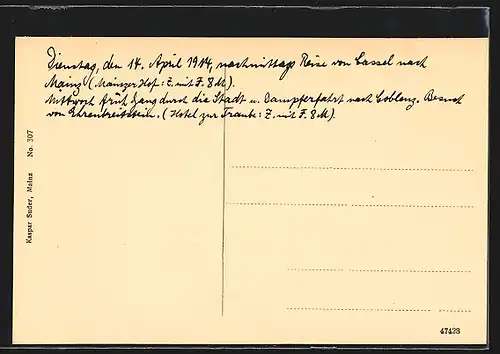 Dienstag, den 14. April 1914, nachmittags Reise von Cassel nach
Mainz (Mainzer Hof: Z. mit F. 8 M).
Mittwoch früh Gang durch die Stadt u. Dampferfahrt nach Coblenz. Besuch
von Ehrenbreitstein. (Hotel zur Traube: Z. mit F. 8 M).
Kaspar Suder, Mainz No. 307
47423